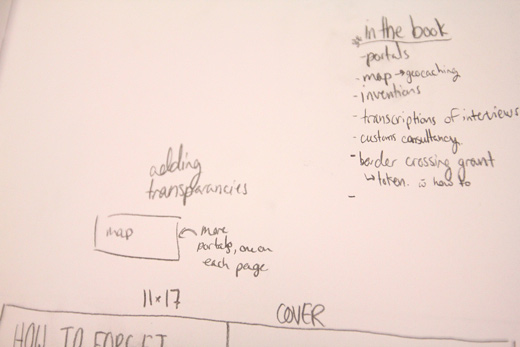 * in the book
- portals
- map → geocaching
- inventions
- transcriptions of interviews
- customs consultancy
- border crossing grant
↳ token. how to
-
adding
transparancies
map
← more
portals, one on
each page
11x17
COVER
HOW TO FORGET